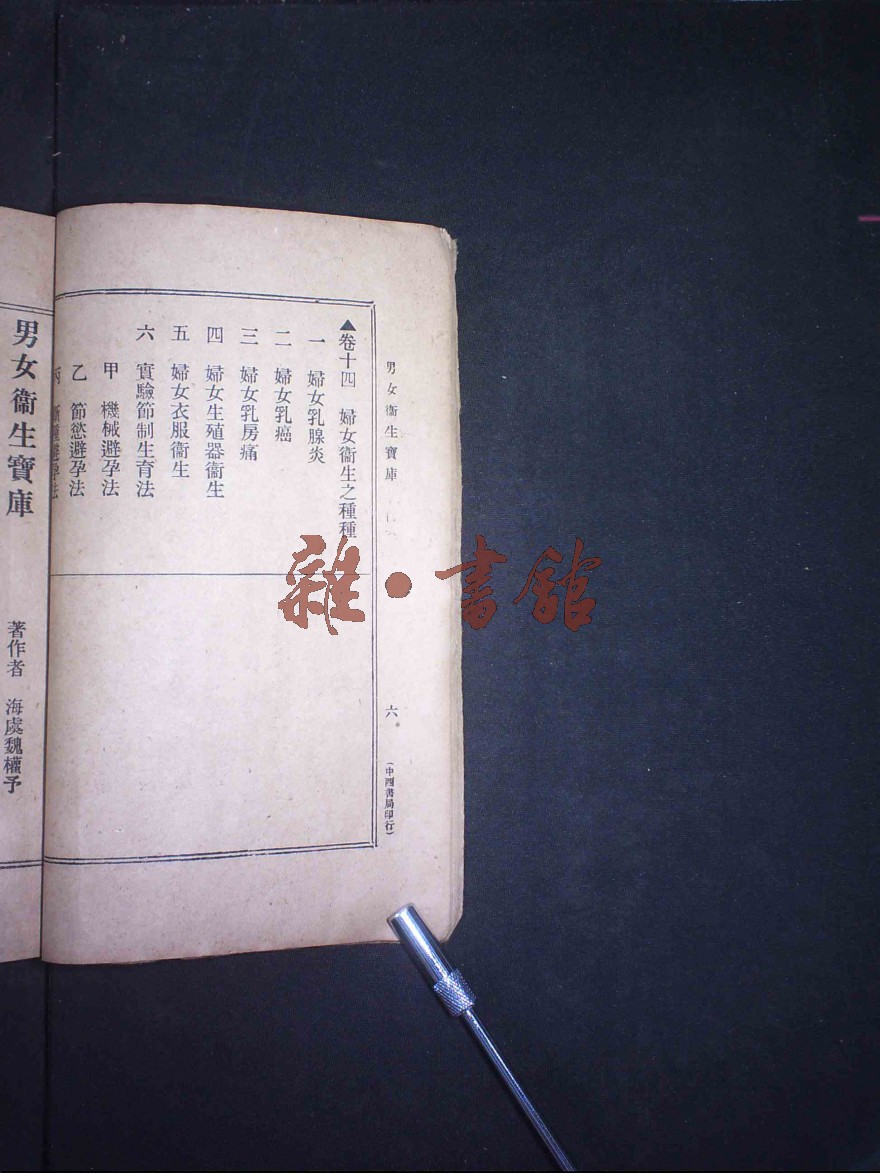 男女衞生寶庫
六
(中西書局印行)
▲卷十四　婦女衞生之種種
一　婦女乳腺炎
二　婦女乳癌
三　婦女乳房痛
四　婦女生殖器衞生
五　婦女衣服衞生
六　實驗節制生育法
甲　機械避孕法
乙　節慾避孕法
丙　避孕法
男女衞生寶庫
著作者　海虞魏權予
雜·書館